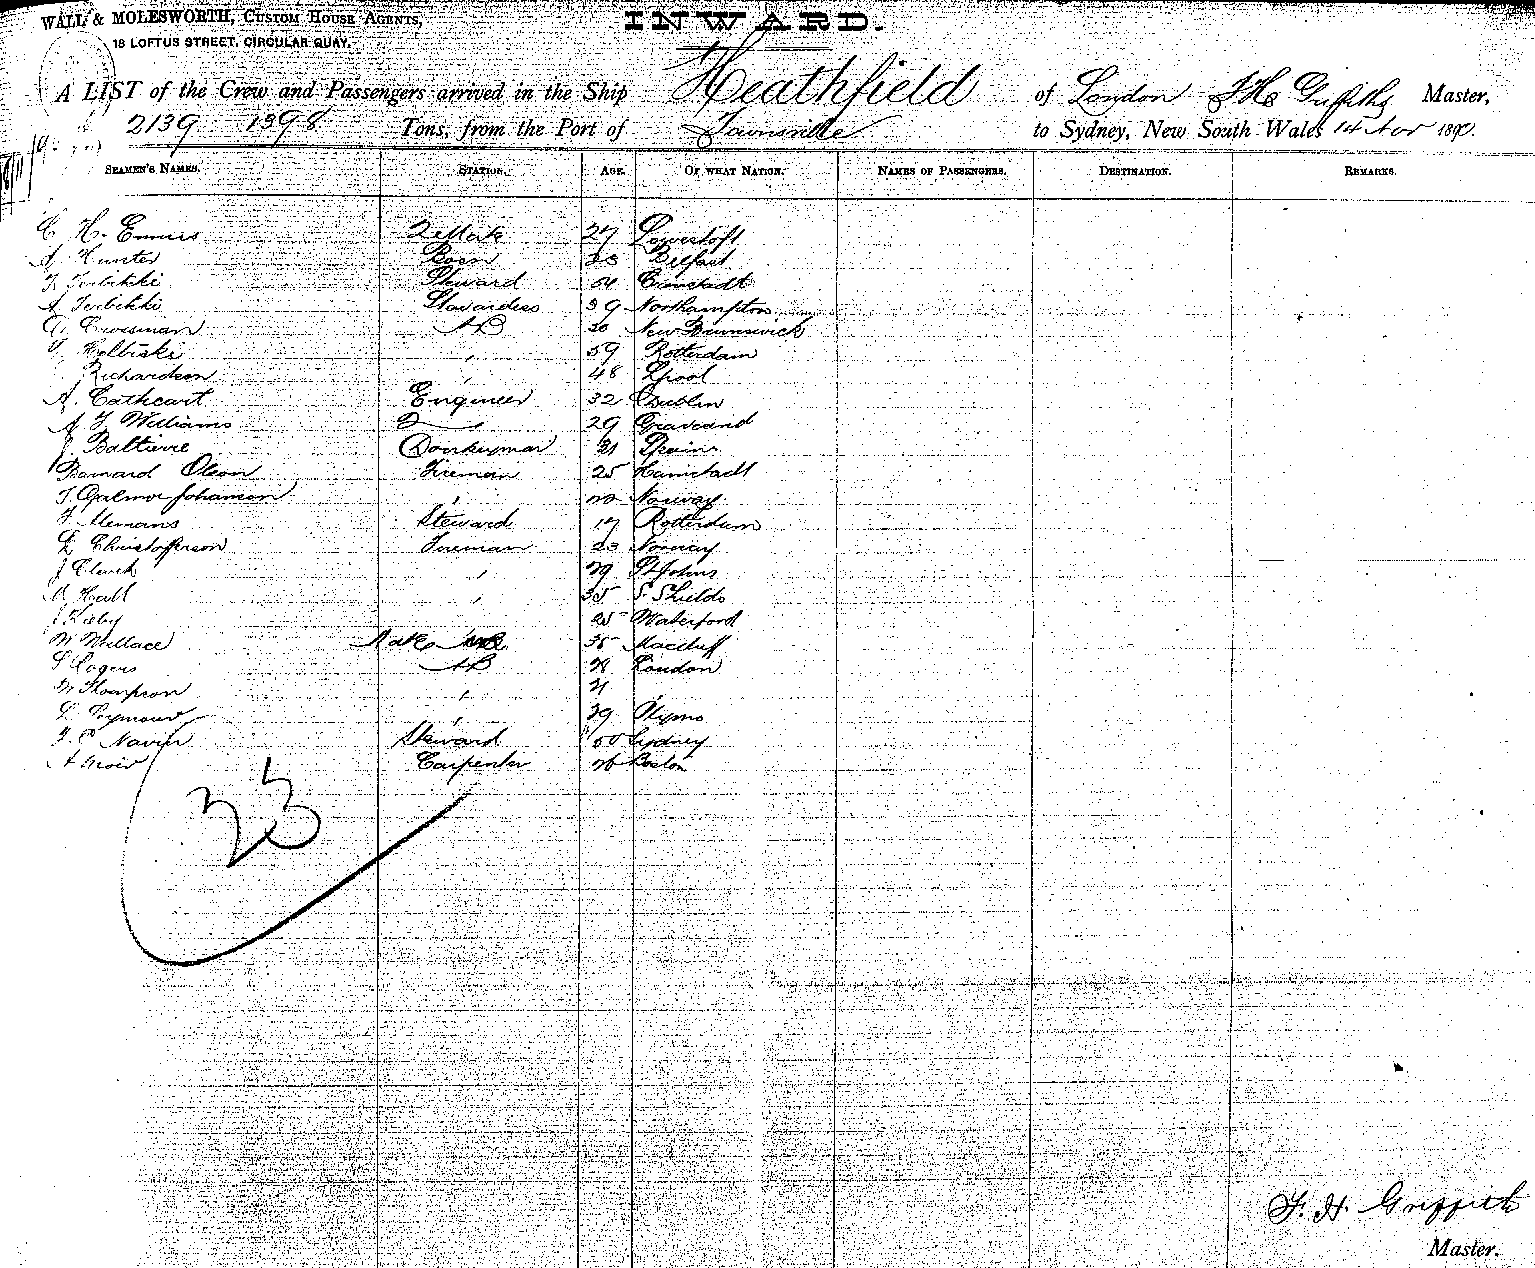 WALL & MOLESWORTH, CUSTOM HOUSE AGENTS,
18 LOFTUS STREET, CIRCULAR QUAY.
INWARD.
A LIST of the Crew and Passengers arrived in the Ship Heathfield of London F H Griffiths Master,
2139 1398 Tons, from the Port of Townsville to Sydney, New South Wales 14 Nov 1890.
SEAMEN'S NAMES. STATION. AGE. OF WHAT NATION. NAMES OF PASSENGERS. DESTINATION. REMARKS.
C H. Ennis 2 Mate 27 Lowestoft
A Hunter Bosn Belfast
Steward Cronstadt
A Stewardess 39 Northampton
G. Crossman AB 20 New Brunswick
" 59 Rotterdam
Richardson " 48 Lpool
A. Cathcart Engineer 32 Dublin
A J Williams 2 " 29 Gravesend
J. Baltierre Donkeyman 31 Spain
Barnard Olson Fireman 25
Johanson " Norway
Steward 17 Rotterdam
Christofferson Fireman 23 Norway
J Clark " 29 St Johns
Hall " 35 S. Shields
25 Waterford
M Wallace Mate 35 Macduff
S Rogers AB 28 London
M Thompson " 21 "
L Seymour " 29
Navin Steward 50 Sydney
Carpenter 26 Boston
23
F. H. Griffith
Master.